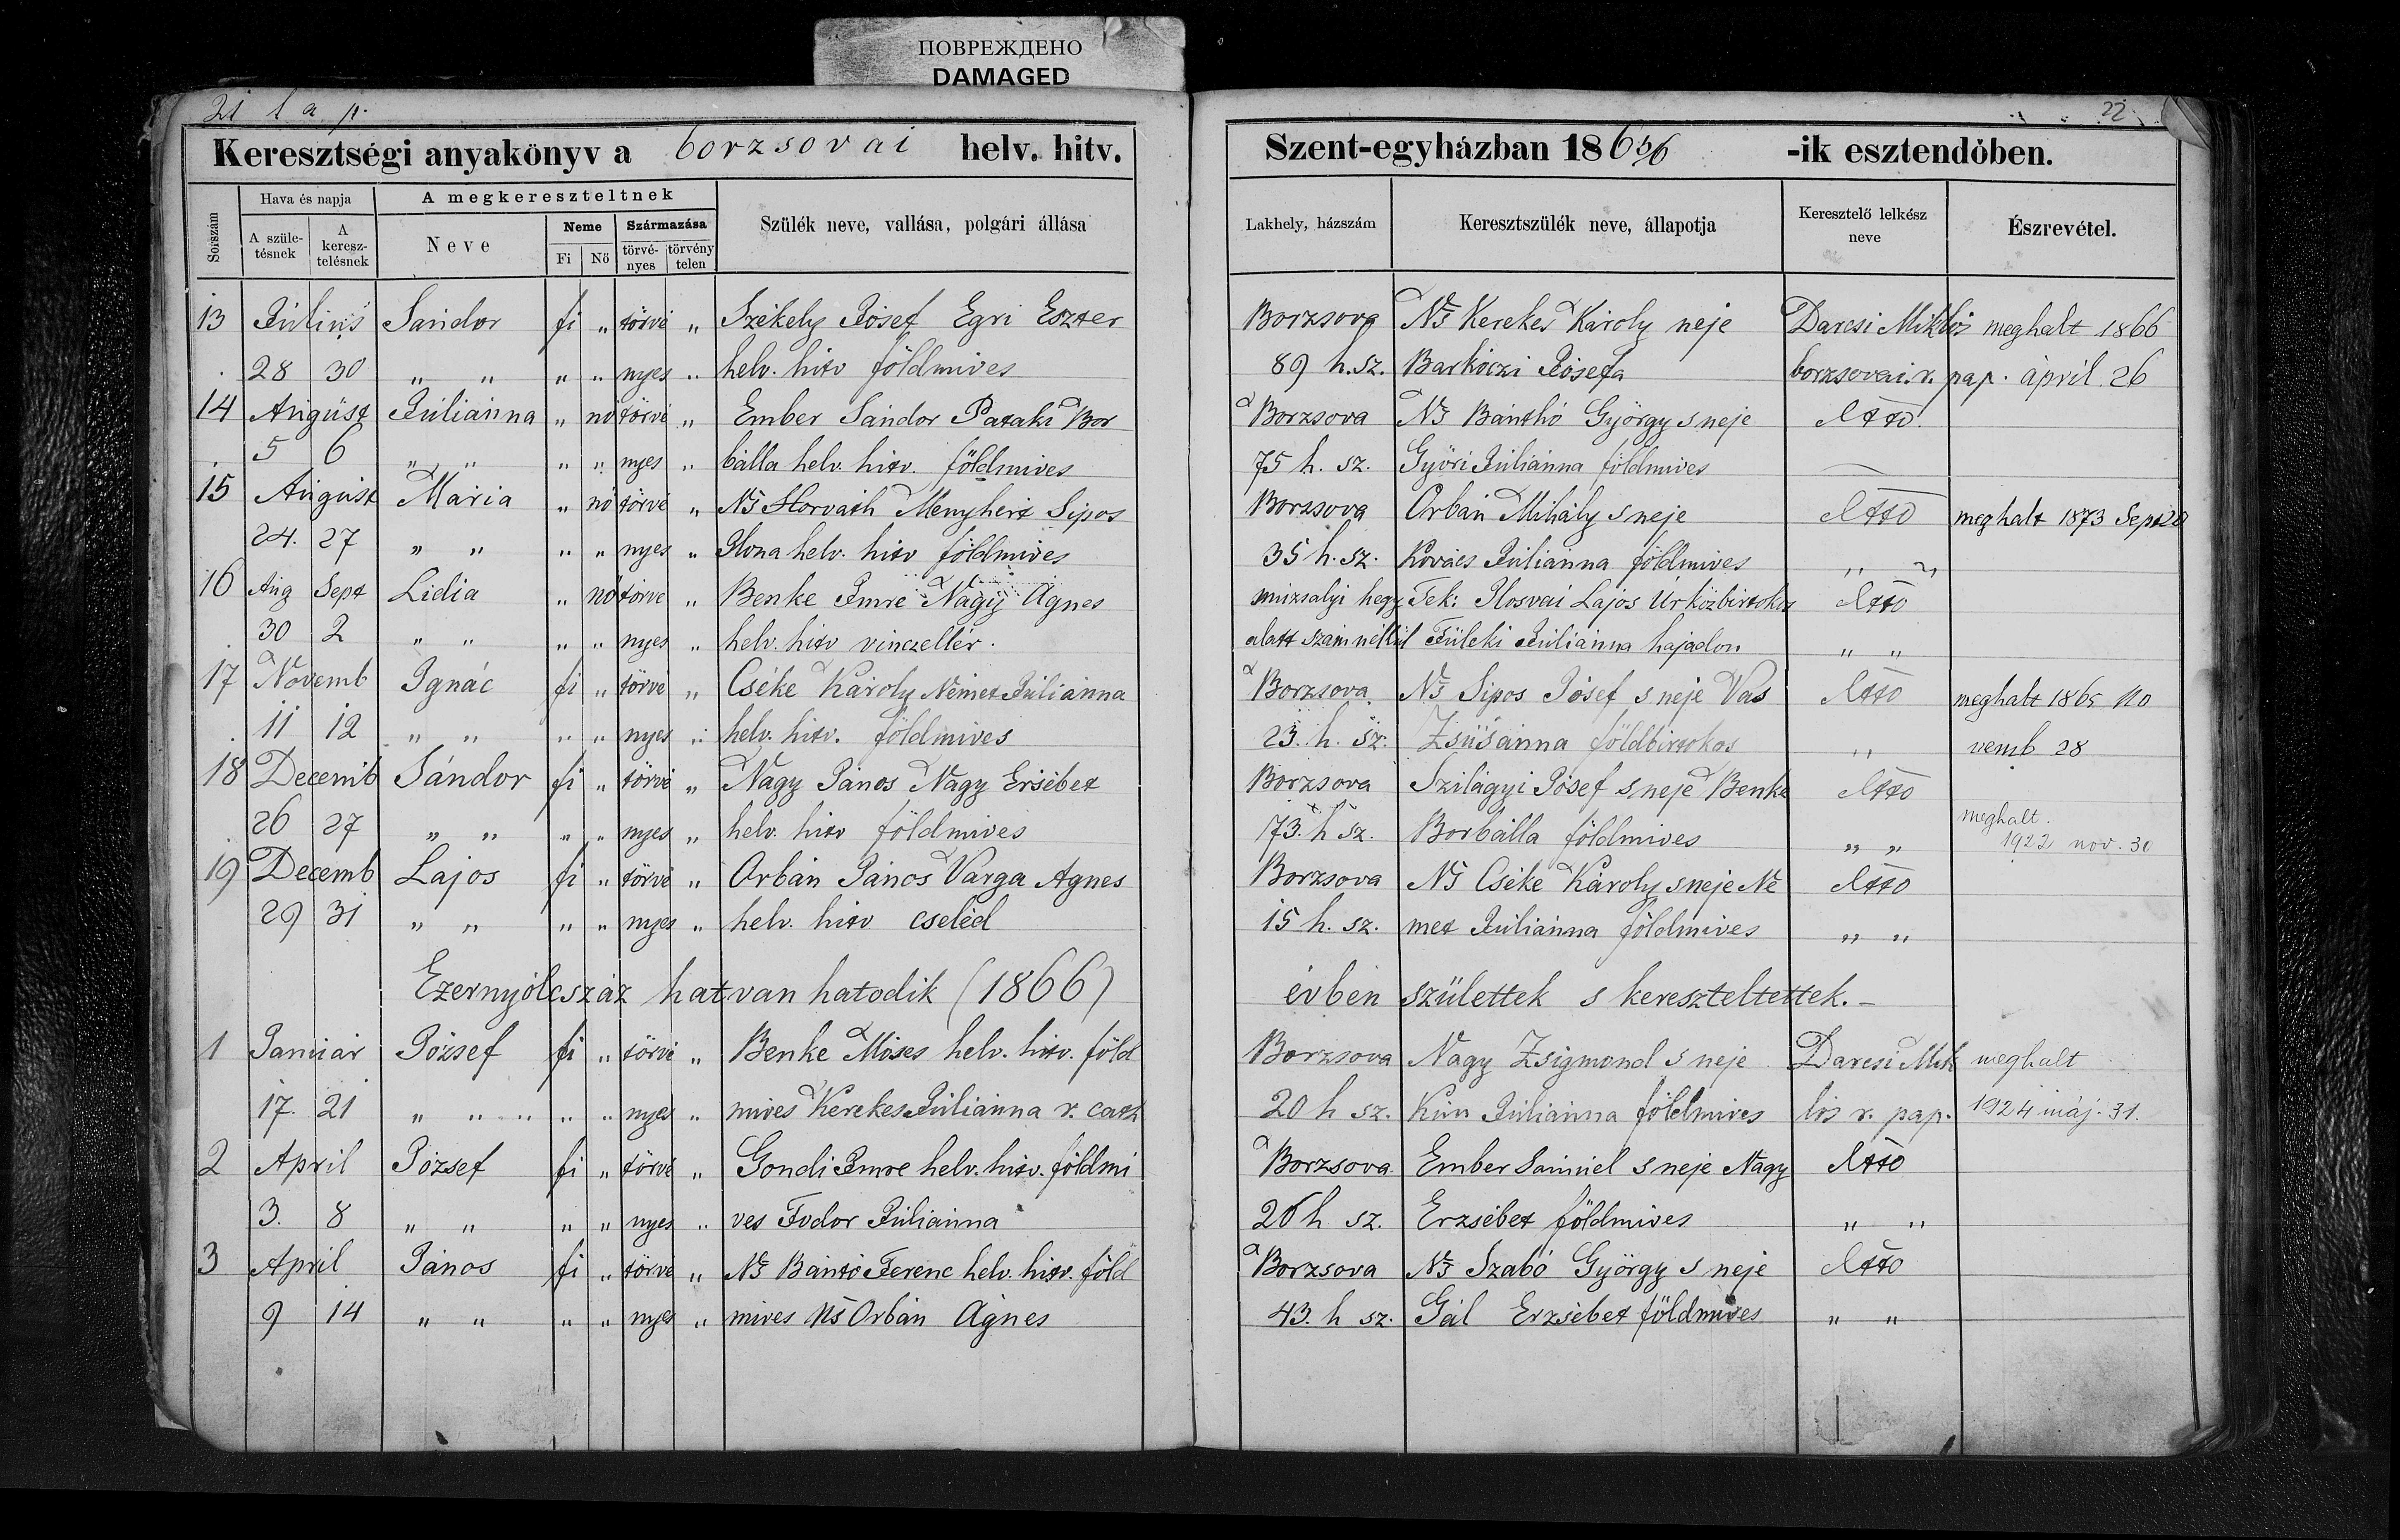 ПОВРЕЖДЕНО
DAMAGED
21 lap.
Keresztségi anyakönyv a borzsovai helv. hitv.
Sorszám
Hava és napja
A megkereszteltnek
A szüle-
tésnek
A
keresz-
telésnek
Neve
Neme
Fi
Nő
Származása
törvé-
nyes
törvény
telen
Szülék neve, vallása, polgári állása
13 Július Sándor fi „ törvé „ Székely Jósef Egri Eszter
28 30 „ „ „ „ nyes „ helv. hitv földmives
14 August Júliánna „ nő törvé „ Ember Sándor Pataki Bor
5 6 „ „ „ „ nyes „ bálla helv. hitv. földmives
15 August Mária „ nő törvé „ Ns Horváth Menyhért Sipos
24. 27 „ „ „ „ nyes „ Ilona helv. hitv földmives
16 Aug Sept Lidia „ nő törvé „ Benke Imre Nagy Ágnes
30 2 „ „ „ „ nyes „ helv. hitv vinczellér.
17 Novemb Ignác fi „ törvé „ Cséke Károly Német Júliánna
11 12 „ „ „ „ nyes „ helv. hitv. földmives
18 Decemb Sándor fi „ törvé „ Nagy János Nagy Ersébet
26 27 „ „ „ „ nyes „ helv. hitv földmives
19 Decemb Lajos fi „ törvé „ Orbán János Varga Ágnes
29 31 „ „ „ „ nyes „ helv. hitv cseléd
Ezernyolcszáz hatvan hatodik (1866)
1 Január József fi „ törvé „ Benke Móses helv. hitv. föld
17. 21 „ „ „ „ „ nyes „ mives Kerekes Júliánna r. cath
2 April József fi „ törvé „ Gondi Imre helv. hitv. földmi
3. 8 „ „ „ „ nyes „ ves Fodor Júliánna
3 April János fi „ törvé „ Ns Bántó Ferenc helv. hitv. föld
9 14 „ „ „ „ nyes „ mives Ns Orbán Ágnes
22
Szent-egyházban 1865/6 -ik esztendőben.
Lakhely, házszám
Keresztszülék neve, állapotja
Keresztelő lelkész
neve
Észrevétel.
Borzsova Ns Kerekes Károly neje Darcsi Miklós meghalt 1866
89 h.sz. Barkóczi Jósefa borzsovai r. pap. ápril 26
Borzsova Ns Bánthó György s neje Atto
75 h. sz. Győri Júliánna földmives
Borzsova Orbán Mihály s neje Atto meghalt 1873 Sept 28
35 h. sz. Kovács Júliánna földmives „ „
muzsalyi hegy Tek: Ilosvai Lajos Úr közbirtokos Atto
alatt szám nélkül Füleki Júliánna hajadon „ „
Borzsova Ns Sipos Jósef s neje Vas Atto meghalt 1865 No
23. h. sz. Zsúsánna földbirtokos „ vemb 28
Borzsova Szilágyi Jósef s neje Benke Atto
73. h sz. Borbálla földmives „ „ meghalt.
1922 nov. 30
Borzsova Ns Cséke Károly s neje Né Atto
15 h. sz. met Júliánna földmives „ „
évben születtek s kereszteltettek. –
Borzsova Nagy Zsigmond s neje Darcsi Mik meghalt
20 h sz. Kun Júliánna földmives lós r. pap. 1924 máj. 31.
Borzsova Ember Sámuel s neje Nagy Atto
26 h sz. Erzsébet földmives „ „
Borzsova Ns Szabó György s neje Atto
43. h sz. Gál Erzsébet földmives „ „